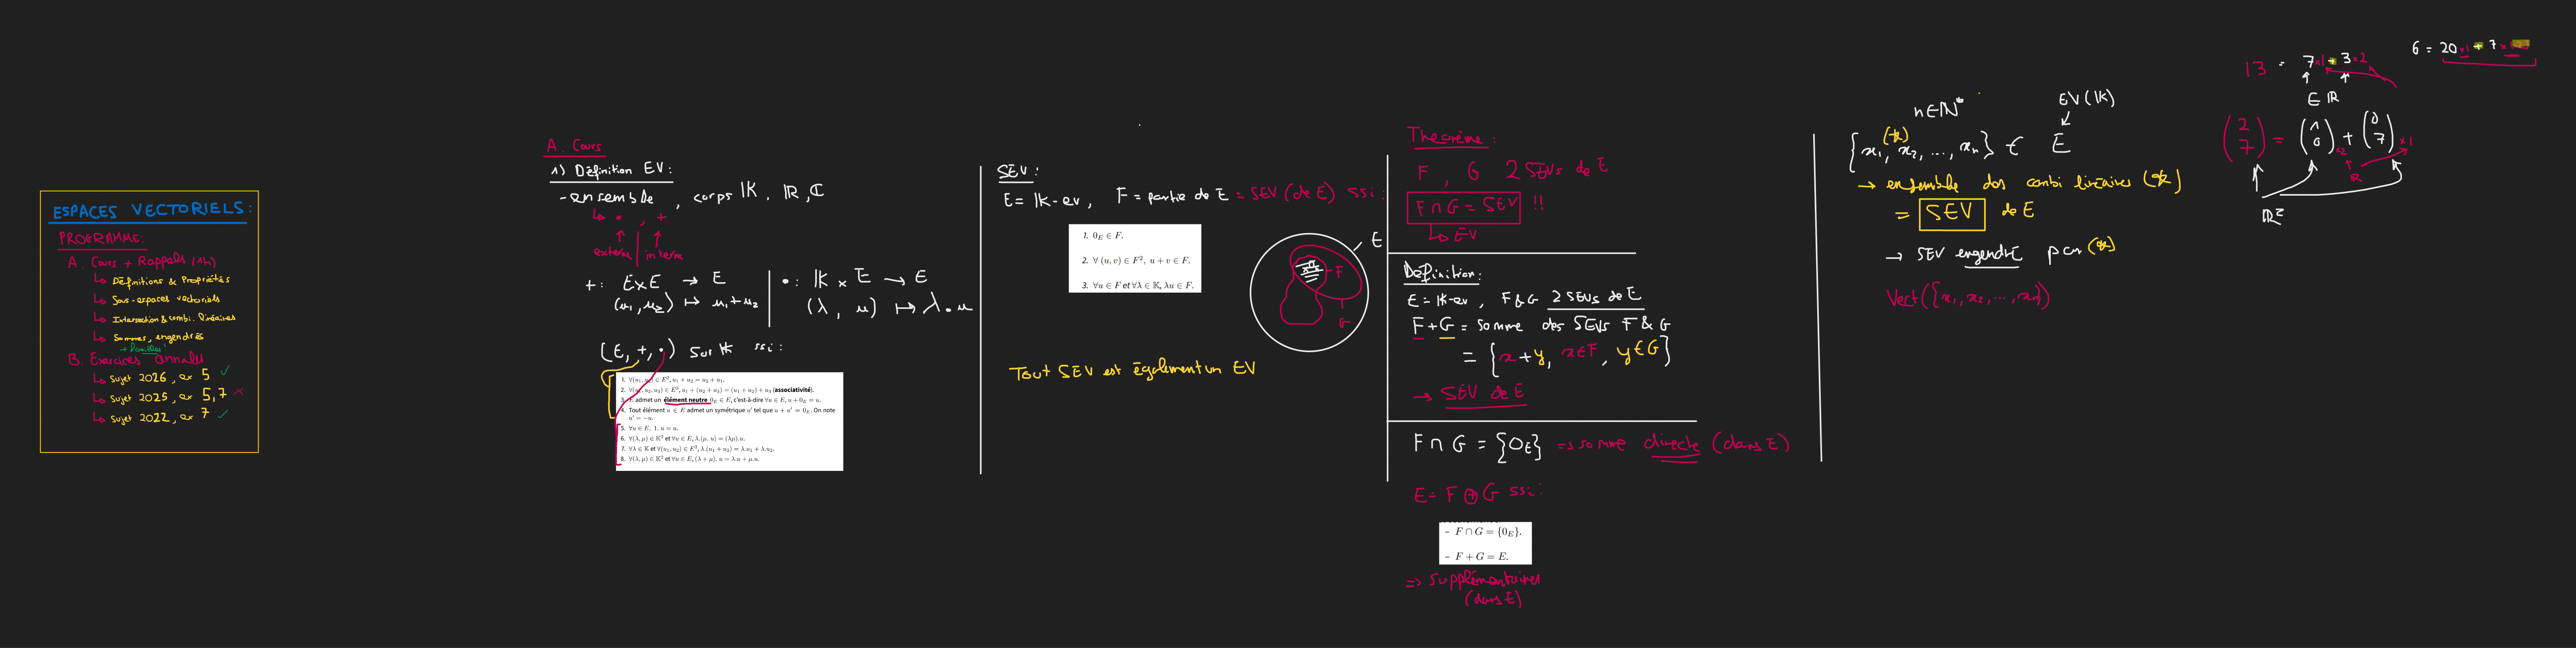 ESPACES VECTORIELS :
PROGRAMME:
A. Cours + Rappels (1h)
↳ Définitions & Propriétés
↳ Sous-espaces vectoriels
↳ Intersection & combi. linéaires
↳ Sommes, engendrés
+ familles!
B. Exercices annales
↳ sujet 2026, ex 5 ✓
↳ sujet 2025, ex 5,7 ×
↳ sujet 2022, ex 7 ✓
A. Cours
1) Définition EV:
- ensemble, corps IK. IR, ℂ
↳ • , +
↑ ↑
externe | interne
+: E×E → E
(u₁, u₂) ↦ u₁+u₂
•: IK × E → E
(λ, u) ↦ λ.u
(E, +, •) sur IK ssi:
1. ∀(u₁, u₂) ∈ E², u₁ + u₂ = u₂ + u₁.
2. ∀(u₁, u₂, u₃) ∈ E³, u₁ + (u₂ + u₃) = (u₁ + u₂) + u₃ (associativité).
3. E admet un élément neutre 0_E ∈ E, c'est-à-dire ∀u ∈ E, u + 0_E = u.
4. Tout élément u ∈ E admet un symétrique u' tel que u + u' = 0_E. On note
u' = −u.
5. ∀u ∈ E, 1. u = u.
6. ∀(λ, μ) ∈ 𝕂² et ∀u ∈ E, λ.(μ. u) = (λμ).u.
7. ∀λ ∈ 𝕂 et ∀(u₁, u₂) ∈ E², λ.(u₁ + u₂) = λ.u₁ + λ.u₂.
8. ∀(λ, μ) ∈ 𝕂² et ∀u ∈ E, (λ + μ). u = λ.u + μ.u.
SEV :
E = IK-ev, F = partie de E = SEV (de E) ssi :
1. 0_E ∈ F.
2. ∀ (u, v) ∈ F², u + v ∈ F.
3. ∀u ∈ F et ∀λ ∈ 𝕂, λu ∈ F.
E
F
G
Tout SEV est également un EV
Théorème :
F, G 2 SEVs de E
F ∩ G = SEV !!
↳ EV
Définition:
E = IK-ev, F & G 2 SEVs de E
F+G = somme des SEVs F & G
= {x + y, x∈F, y∈G}
→ SEV de E
F ∩ G = {0_E} => somme directe (dans E)
E = F ⊕ G ssi:
– F ∩ G = {0_E}.
– F + G = E.
=> supplémentaires
(dans E)
n∈IN*
EV (IK)
↙
(*)
{x₁, x₂, ..., xₙ} ∈ E
→ ensemble des combi linéaires (*)
= SEV de E
→ SEV engendré par (*)
Vect({x₁, x₂, ..., xₙ})
6 = 20 ×1 + 7
13 = 7×1 + 3×2
↑ ↑
∈ IR
(2 7) = (1 0) ×2 + (0 7) ×1
IR
IR²